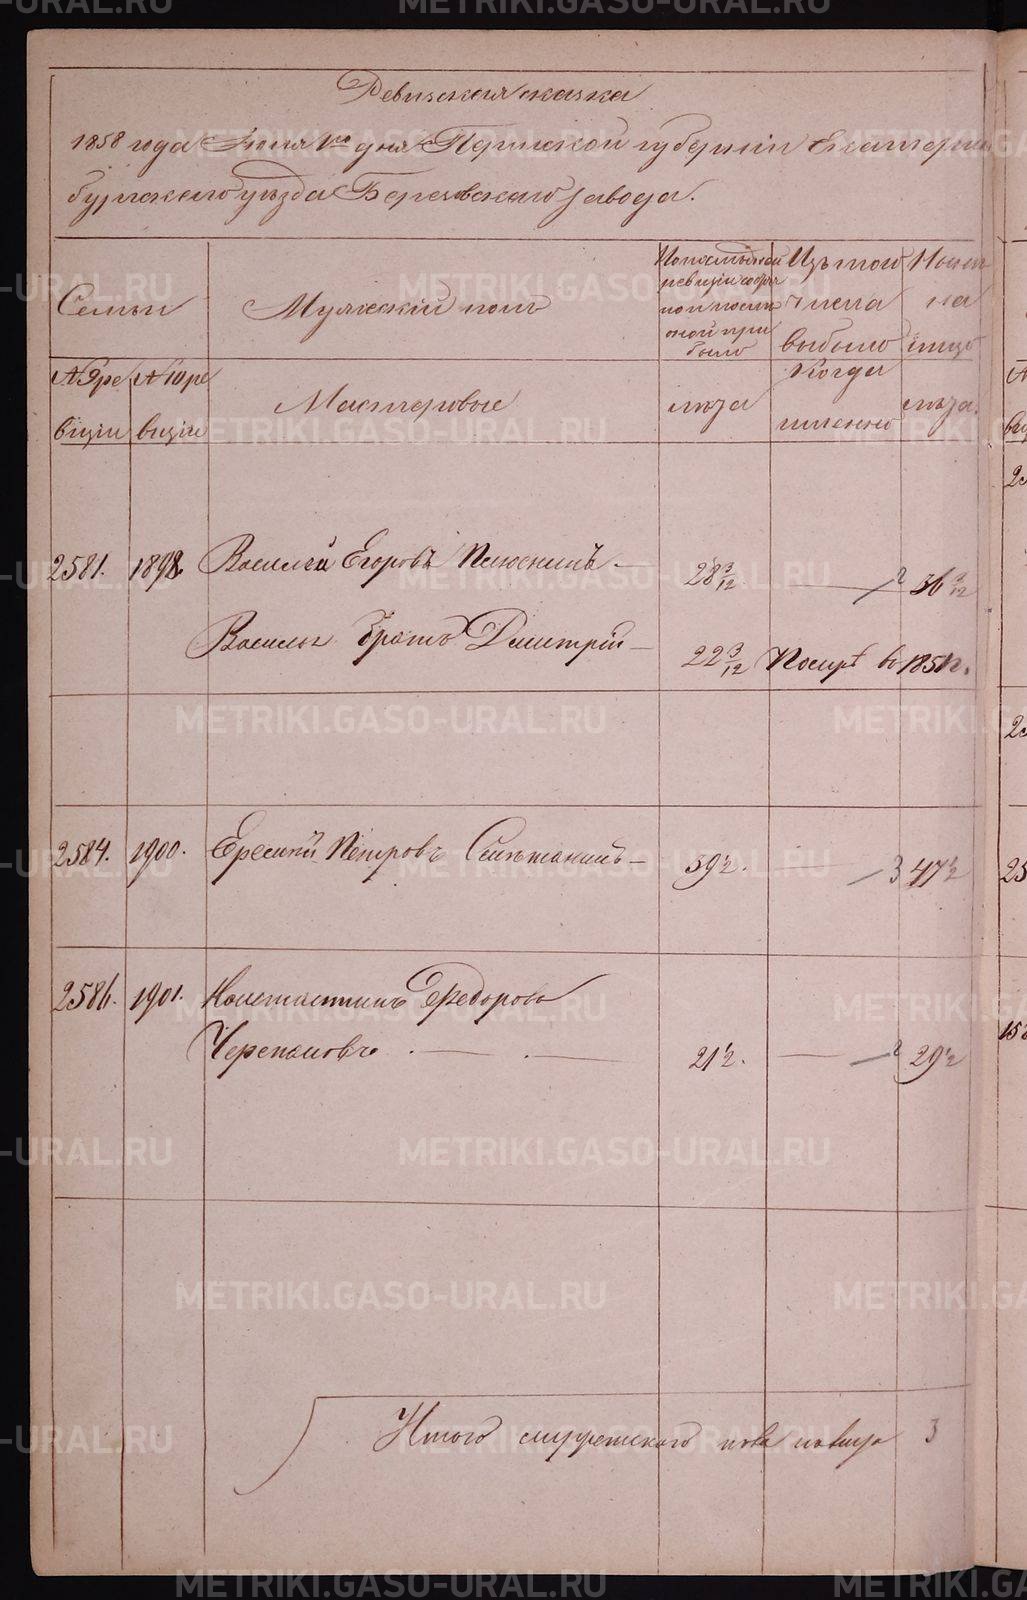 Ревизская сказка
1858 года Июня 1го дня Пермской губернiи Екатерин
бургского уѣзда Березовского завода.
Семьи
Мужескiй полъ
По последней
ревизiи состоя
ной при
было
Изъ того
числа
выбыло
Ныне
на
лицо
№ 9 ре
визiи
№ 10 ре
визiи
Мастеровые
лѣта
Когда
именно
лѣта.
2581. 1898. Василiй Егоровъ — 28 3/12 — 36 3/12
Василья братъ Дмитрiй — 22 3/12 Помер въ 1851 г.
2584. 1900. Петровъ — 39 1/2. — 47 1/2
2586. 1901. Константинъ Федоровъ
Черепановъ . — . — 21 1/2. — 29 1/2
Итого мужескаго пола на лицо 3
METRIKI.GASO-URAL.RU